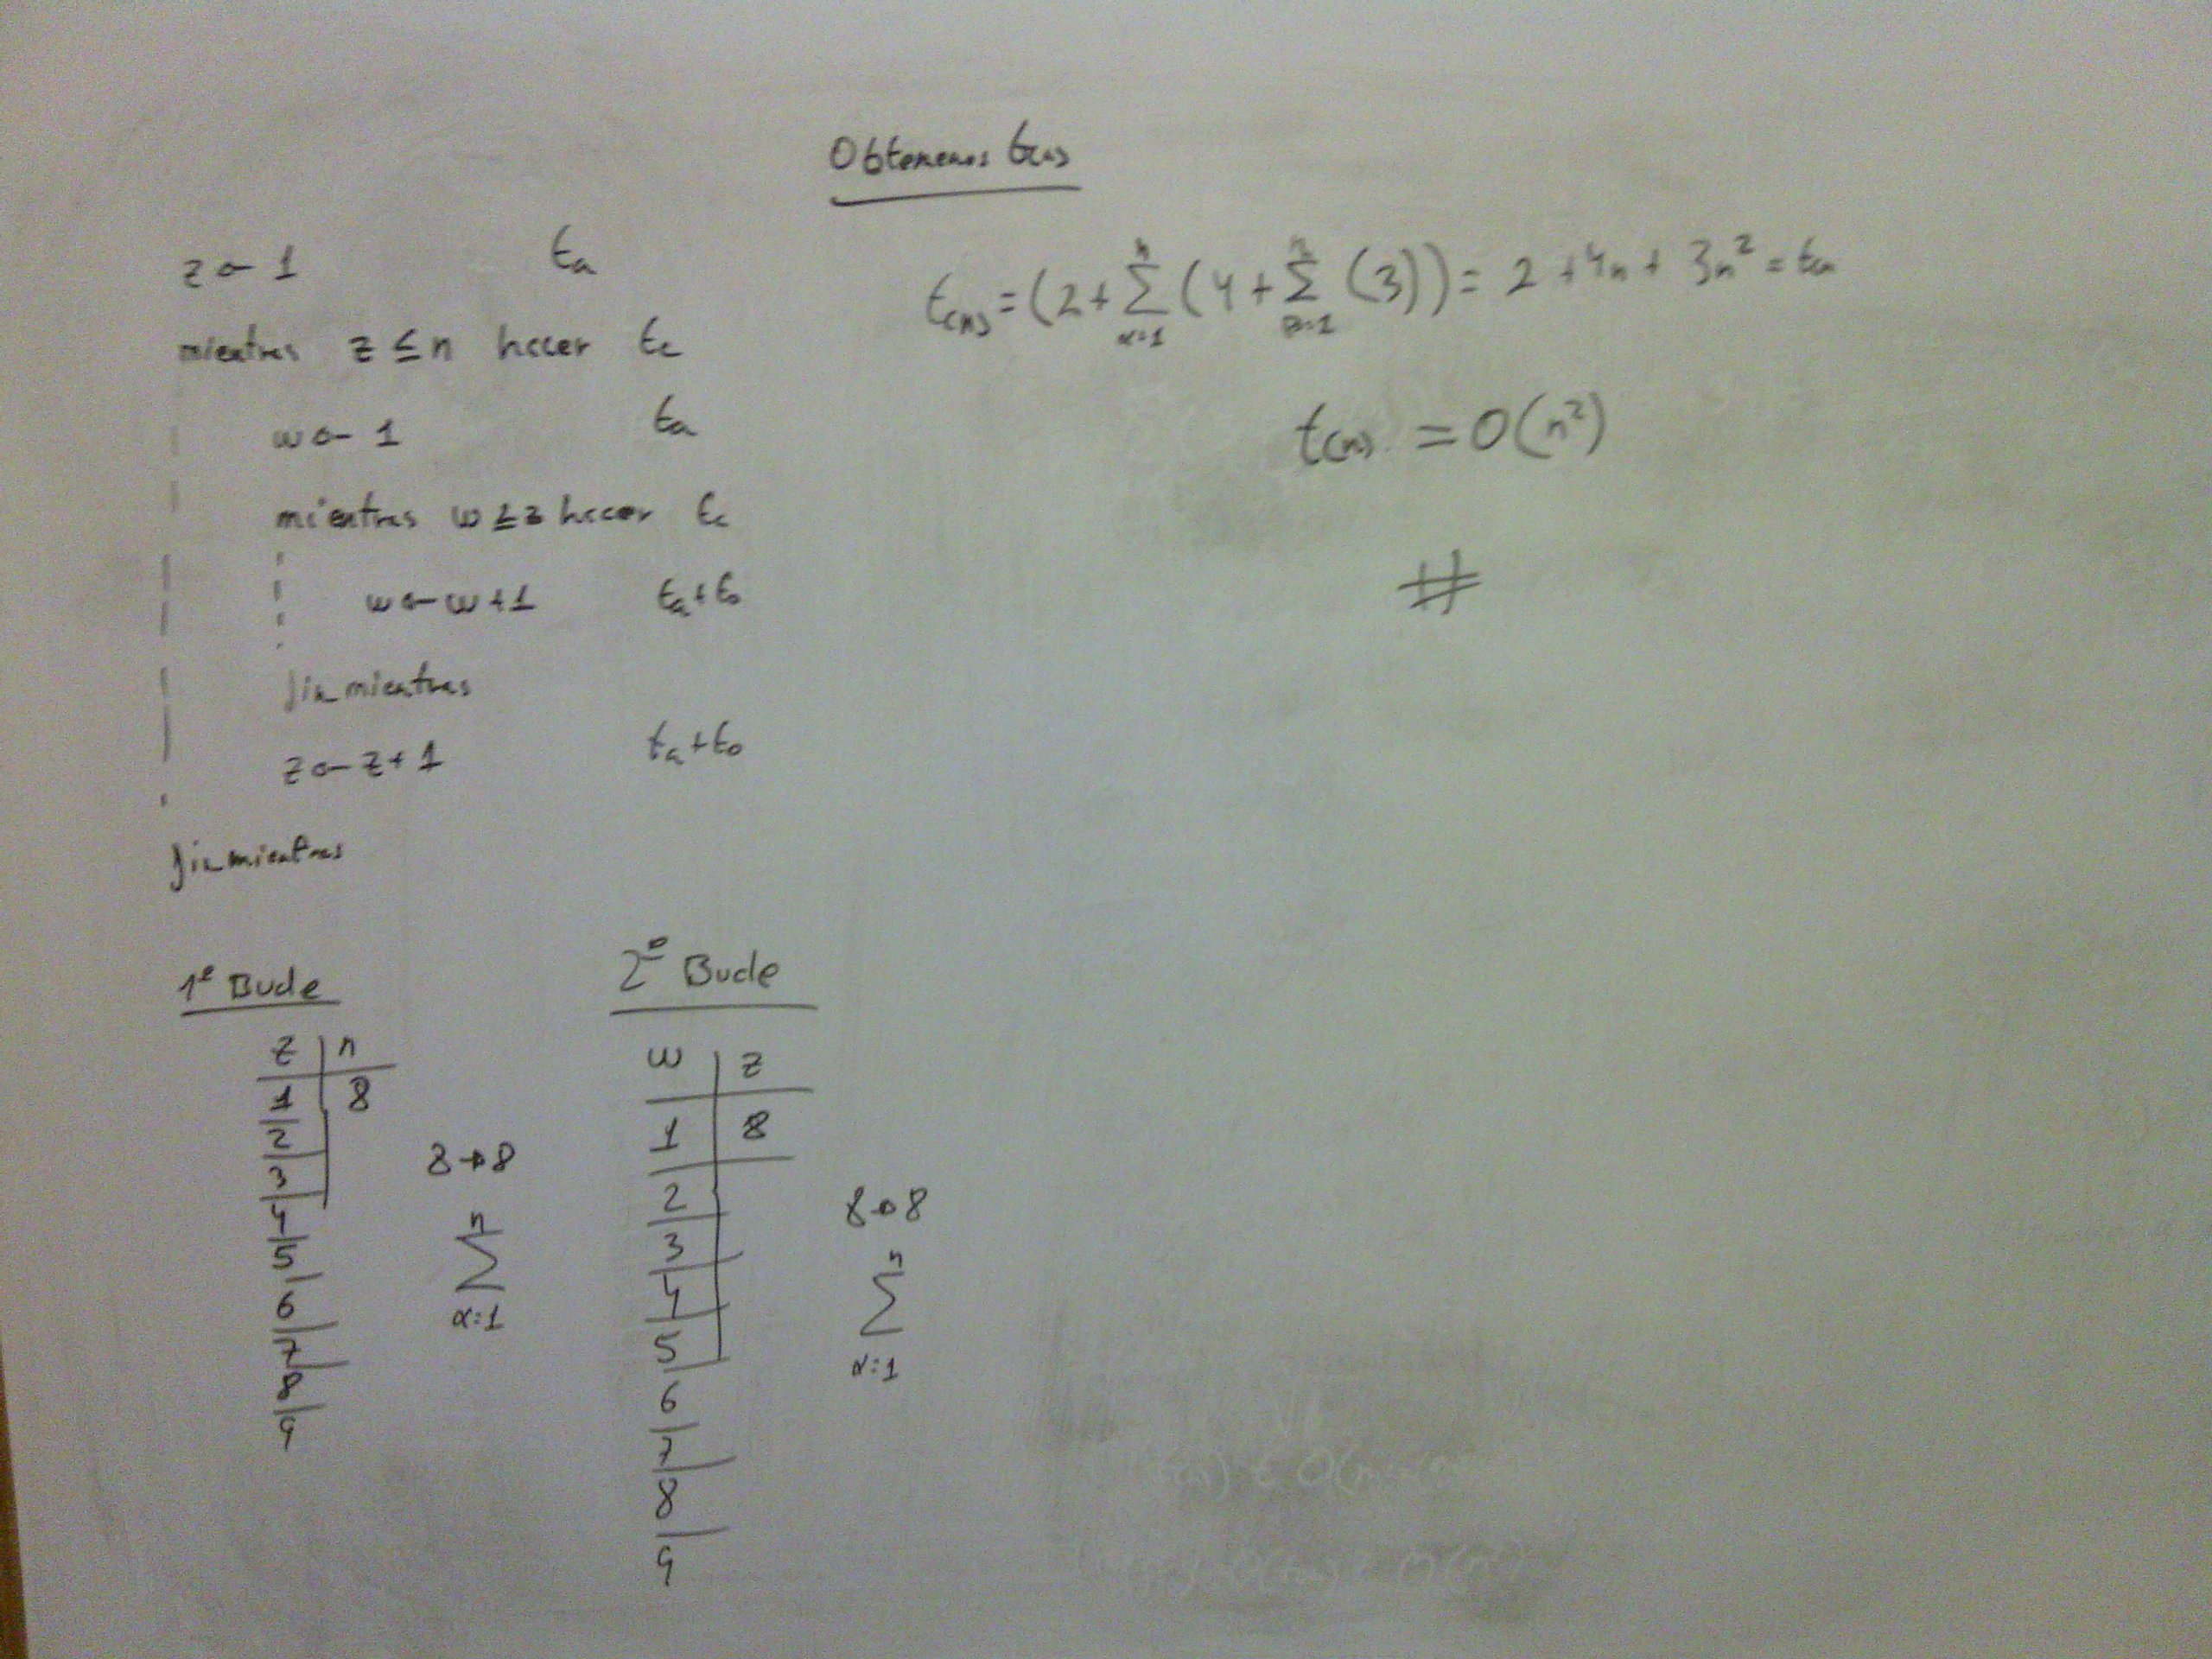 Obtenemos t(n)
z ← 1 ta
mientras z ≤ n hacer tc
w ← 1 ta
mientras w ≤ z hacer tc
w ← w + 1 ta + to
finmientras
z ← z + 1 ta + to
finmientras
t(n) = (2 + ∑ n α=1 (4 + ∑ n β=1 (3))) = 2 + 4n + 3n² = t(n)
t(n) = O(n²)
#
1º Bucle
z | n
1 | 8
2
3
4
5
6
7
8
9
8 → 8
n
∑
α=1
2º Bucle
w | z
1 | 8
2
3
4
5
6
7
8
9
8 → 8
n
∑
α=1